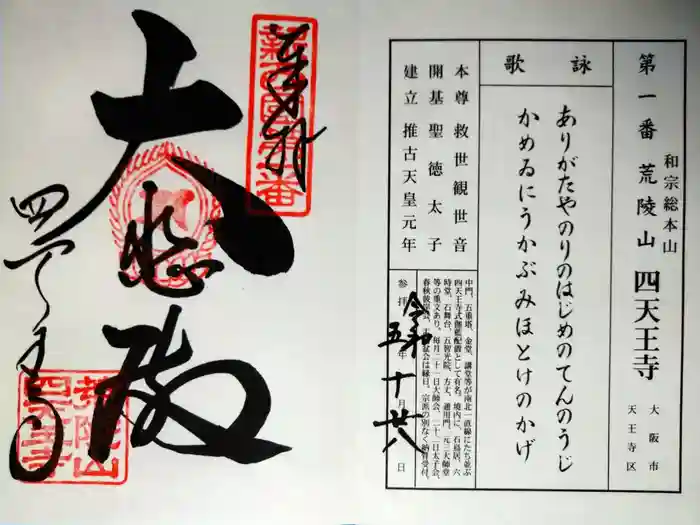 第一番 荒陵山 四天王寺
和宗総本山
大阪市
天王寺区
詠歌
ありがたやのりのはじめのてんのうじ
かめゐにうかぶみほとけのかげ
本尊 救世観世音
開基 聖徳太子
建立 推古天皇元年
中門、五重塔、金堂、講堂等が南北一直線にたち並ぶ
四天王寺式伽藍配置として有名。境内に、石鳥居、六
時堂、石舞台、五智光院、方丈、通用門、元三大師堂
等の重文あり。毎月二十一日大師会、二十二日太子会、
春秋彼岸会、盂蘭盆会は縁日。宗派の別なく納骨受付。
参拝 令和五年十月廿八日
奉拝
新西国第一番
大悲殿
四天王寺
荒陵山
四天王寺